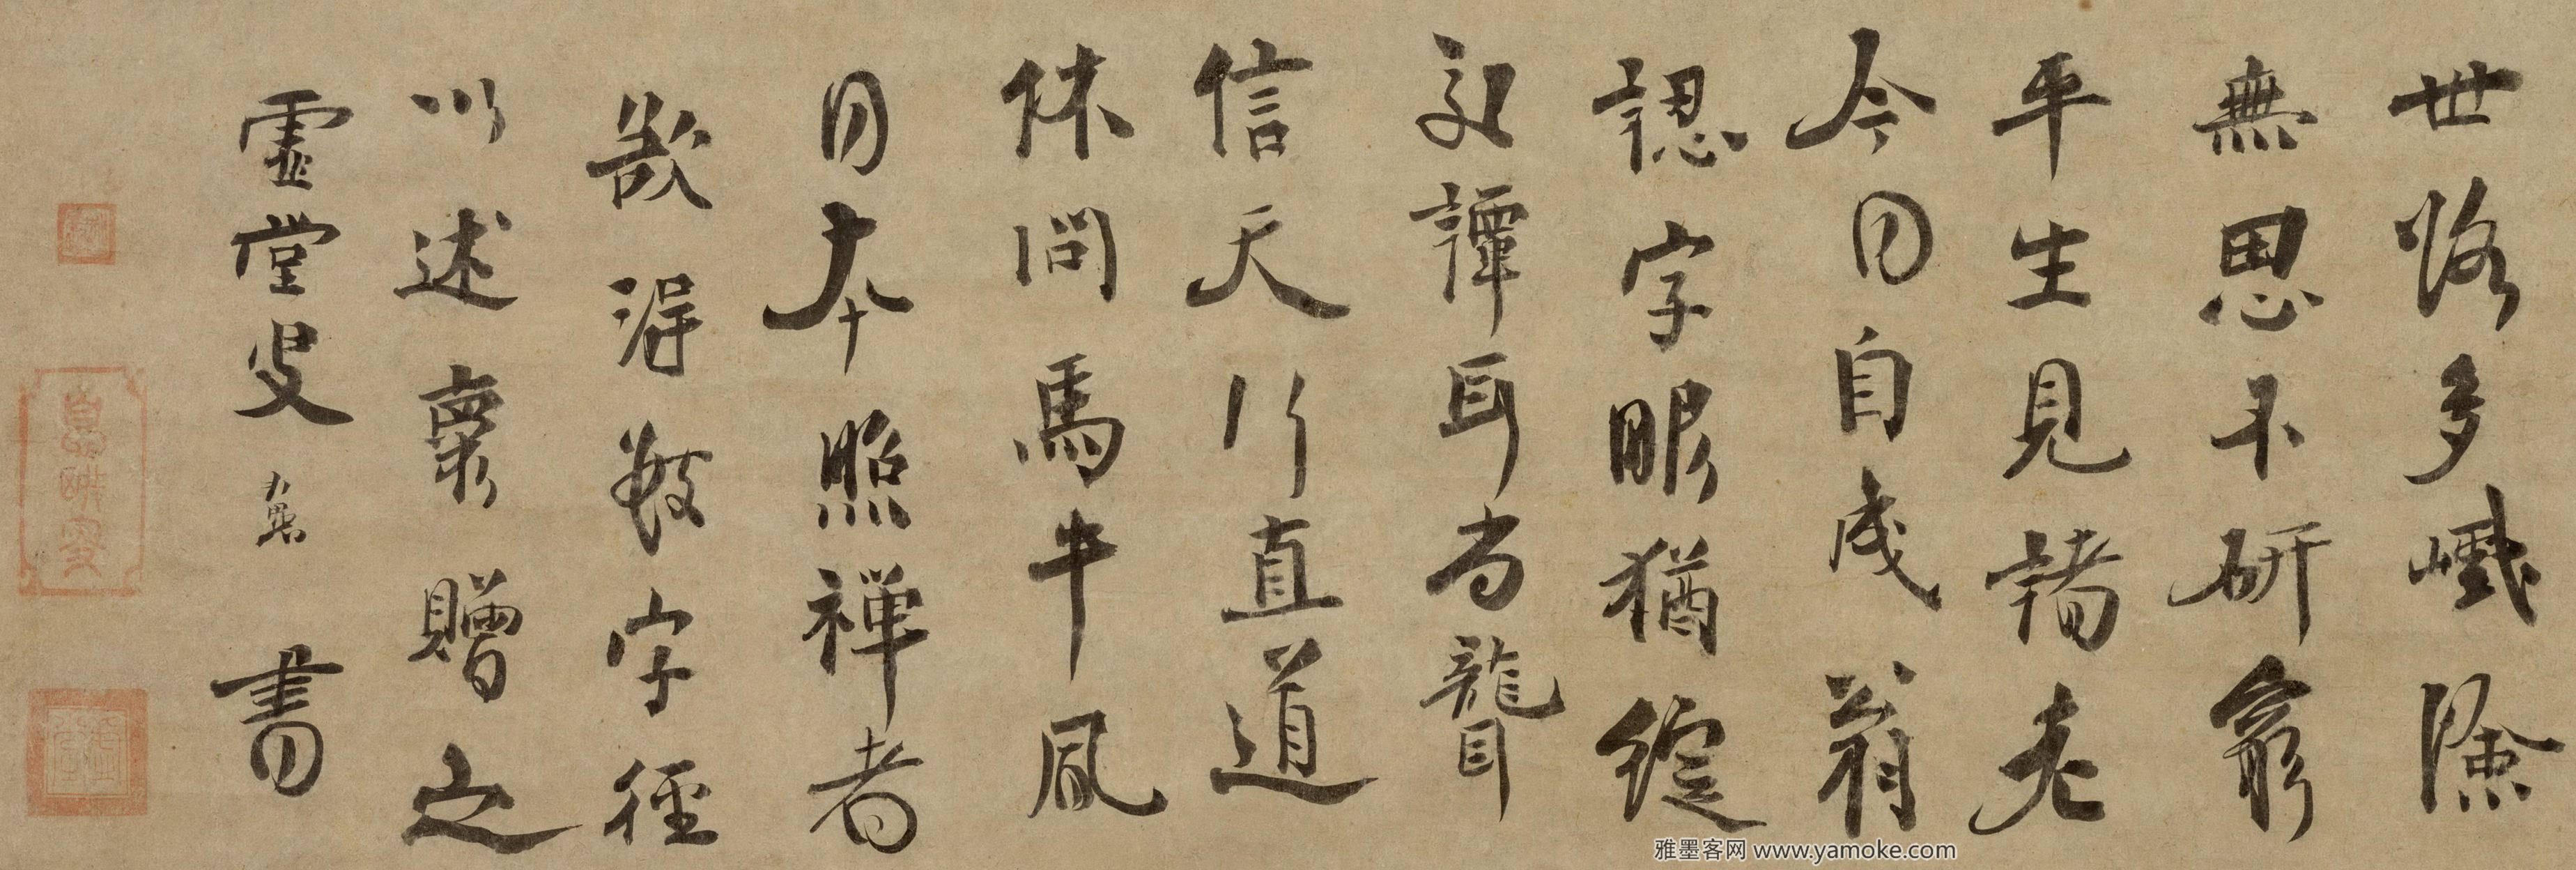 世路多巇險
無思不研窮
平生見諸老
今日自成翁
認字眼猶綻
交譚耳尚聾
信天行直道
休問馬牛風
日本照禅者
欲得數字徑
以述褱贈之
虛堂叟智愚書
雅墨客网 www.yamoke.com